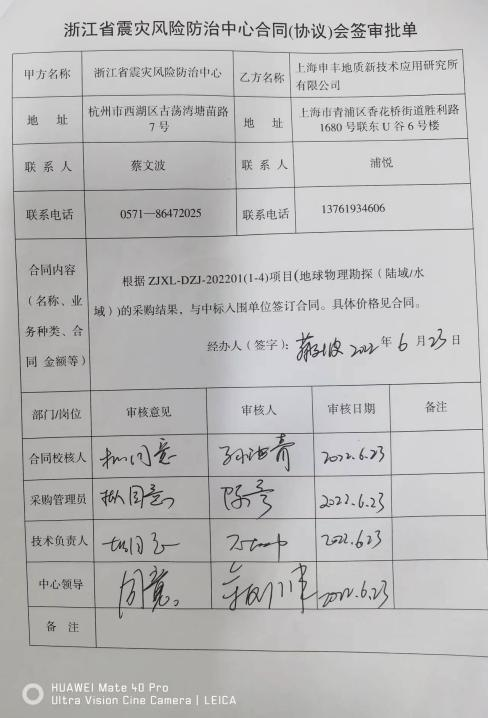 浙江省震灾风险防治中心合同(协议)会签审批单
甲方名称 浙江省震灾风险防治中心 乙方名称 上海申丰地质新技术应用研究所
有限公司
地 址 杭州市西湖区古荡湾塘苗路
7号 地 址 上海市青浦区香花桥街道胜利路
1680号联东U谷6号楼
联系人 蔡文波 联系人 浦悦
联系电话 0571—86472025 联系电话 13761934606
合同内容
(名称、业
务种类、合
同 金额等)
根据 ZJXL-DZJ-202201(1-4)项目(地球物理勘探(陆域/水
域))的采购结果,与中标入围单位签订合同。具体价格见合同。
经办人(签字): 2022年6月23日
部门/岗位 审核意见 审核人 审核日期 备注
合同校核人 拟同意 2022.6.23
采购管理员 拟同意 2022.6.23
技术负责人 拟同意 2022.6.23
中心领导 同意。 2022.6.23
备 注
HUAWEI Mate 40 Pro
Ultra Vision Cine Camera | LEICA